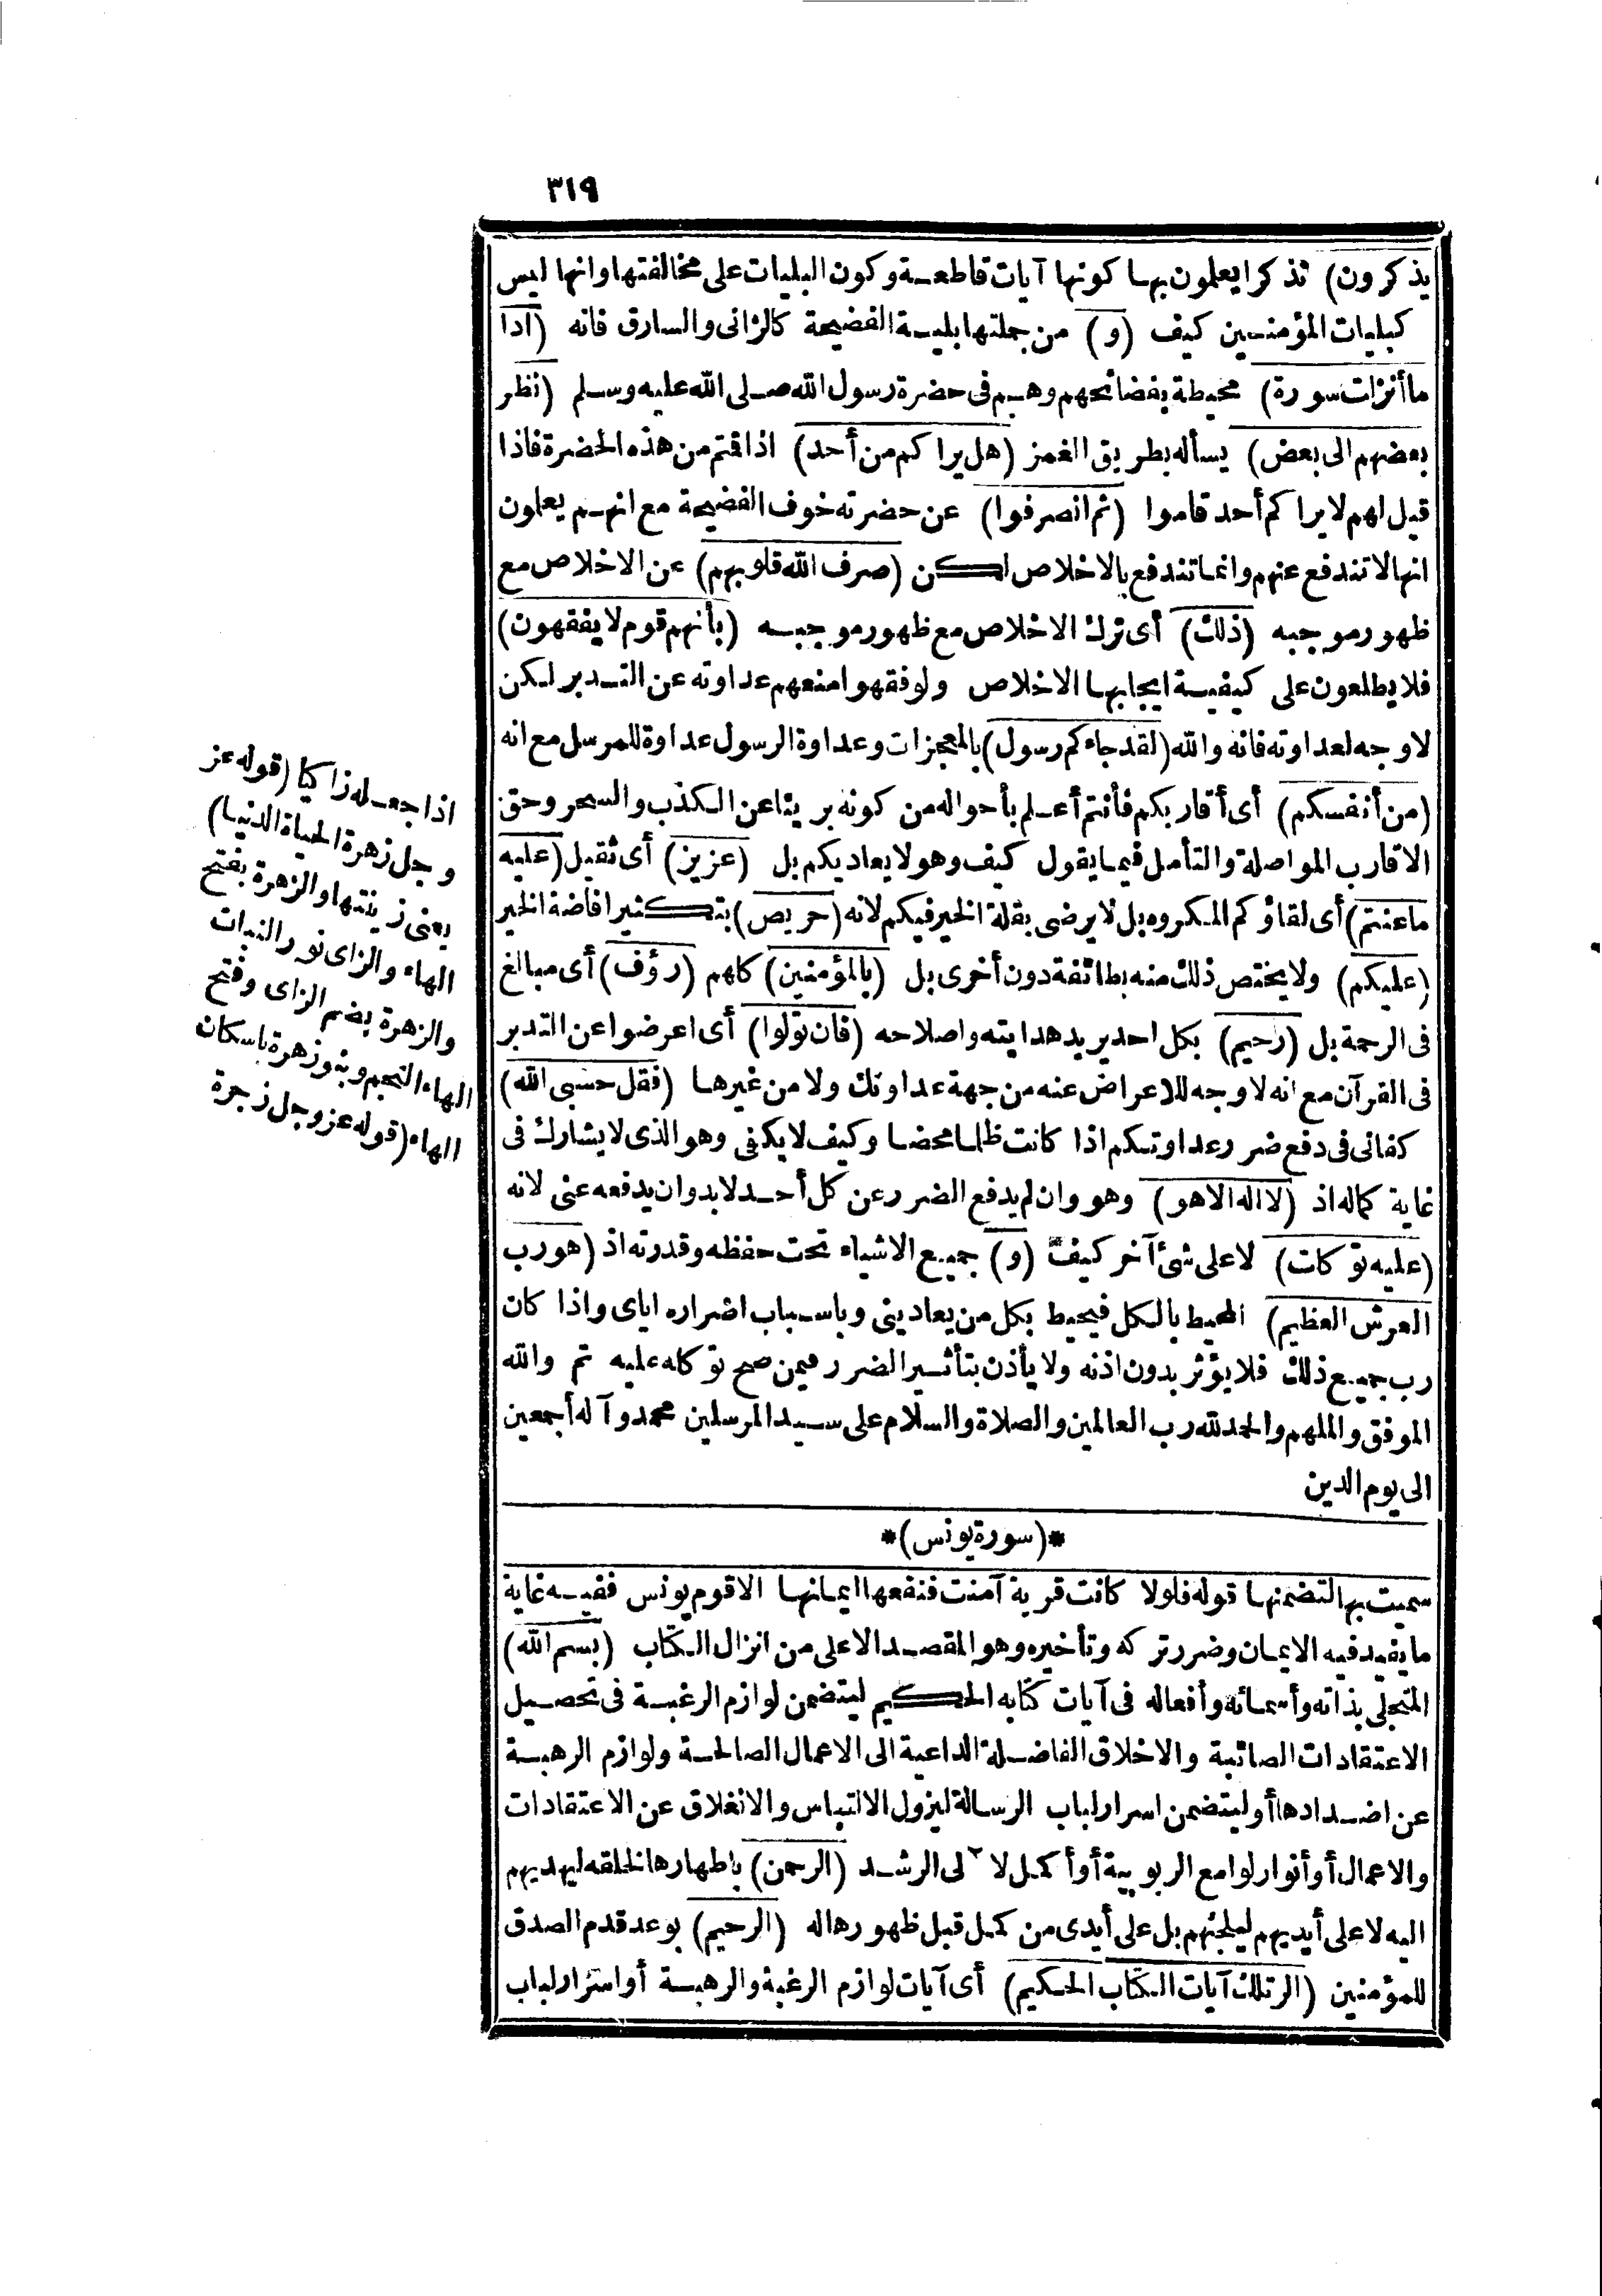 ٣١٩
يذكرون) تذكرا يعلمون بها كونها آيات قاطعة وكون البليات على مخالفتها وانها ليس
كبليات المؤمنين كيف (و) من جملتها بلية الفضيحة كالزانى والسارق فانه (اذا
ما أنزلت سورة) محيطة بفضائحهم وهم فى حضرة رسول الله صلى الله عليه وسلم (نظر
بعضهم الى بعض) يسأله بطريق الغمز (هل يراكم من أحد) اذا قمتم من هذه الحضرة فاذا
قيل لهم لا يراكم أحد قاموا (ثم انصرفوا) عن حضرته خوف الفضيحة مع انهم يعلمون
انها لا تندفع عنهم وانما تندفع بالاخلاص لكن (صرف الله قلوبهم) عن الاخلاص مع
ظهور موجبه (ذلك) أى ترك الاخلاص مع ظهور موجبه (بأنهم قوم لا يفقهون)
فلا يطلعون على كيفية ايجابها الاخلاص ولو فقهوا منعهم عداوته عن التدبر لكن
لا وجه لعداوته فانه والله (لقد جاءكم رسول) بالمعجزات وعداوة الرسول عداوة للمرسل مع انه
(من أنفسكم) أى أقاربكم فأنتم أعلم بأحواله من كونه بريئا عن الكذب والسحر وحق
الاقارب المواصلة والتأمل فيما يقول كيف وهو لا يعاديكم بل (عزيز) أى ثقيل (عليه
ما عنتم) أى لقاؤكم المكروه بل لا يرضى بقلة الخير فيكم لانه (حريص) بتكثير افاضة الخير
(عليكم) ولا يختص ذلك منه بطائفة دون أخرى بل (بالمؤمنين) كلهم (رؤف) أى مبالغ
فى الرحمة بل (رحيم) بكل احد يريد هدايته واصلاحه (فان تولوا) أى اعرضوا عن التدبر
فى القرآن مع انه لا وجه للاعراض عنه من جهة عداوتك ولا من غيرها (فقل حسبى الله)
كفانى فى دفع ضرر عداوتكم اذا كانت ظلما محضا وكيف لا يكفى وهو الذى لا يشارك فى
غاية كماله اذ (لا اله الا هو) وهو وان لم يدفع الضرر عن كل أحد لا بد وان يدفعه عنى لانه
(عليه توكلت) لا على شئ آخر كيف (و) جميع الاشياء تحت حفظه وقدرته اذ (هو رب
العرش العظيم) المحيط بالكل فيحيط بكل من يعادينى وباسباب اضراره اياى واذا كان
رب جميع ذلك فلا يؤثر بدون اذنه ولا يأذن بتأثير الضرر فيمن صح توكله عليه تم والله
الموفق والملهم والحمد لله رب العالمين والصلاة والسلام على سيد المرسلين محمد وآله أجمعين
الى يوم الدين
*(سورة يونس)*
سميت بها لتضمنها قوله فلولا كانت قرية آمنت فنفعها ايمانها الا قوم يونس ففيه غاية
ما يفيد فيه الايمان وضرر تركه وتأخيره وهو المقصد الاعلى من انزال الكتاب (بسم الله)
المتجلى بذاته وأسمائه وأفعاله فى آيات كتابه الحكيم ليتضمن لوازم الرغبة فى تحصيل
الاعتقادات الصائبة والاخلاق الفاضلة الداعية الى الاعمال الصالحة ولوازم الرهبة
عن اضدادها أو ليتضمن اسرار لباب الرسالة ليزول الالتباس والانغلاق عن الاعتقادات
والاعمال أو أنوار لوامع الربوبية أو أكمل لا لى الرشد (الرحمن) باظهارها لخلقه ليهديهم
اليه لا على أيديهم ليلجئهم بل على أيدى من كمل قبل ظهورها له (الرحيم) بوعد قدم الصدق
للمؤمنين (الر تلك آيات الكتاب الحكيم) أى آيات لوازم الرغبة والرهبة أو اسرار لباب
اذا جعله زاكيا (قوله عز
وجل زهرة الحياة الدنيا)
يعنى زينتها والزهرة بفتح
الهاء والزاى نور النبات
والزهرة بضم الزاى وفتح
الهاء النجم وبنو زهرة باسكان
الهاء (قوله عز وجل زجرة